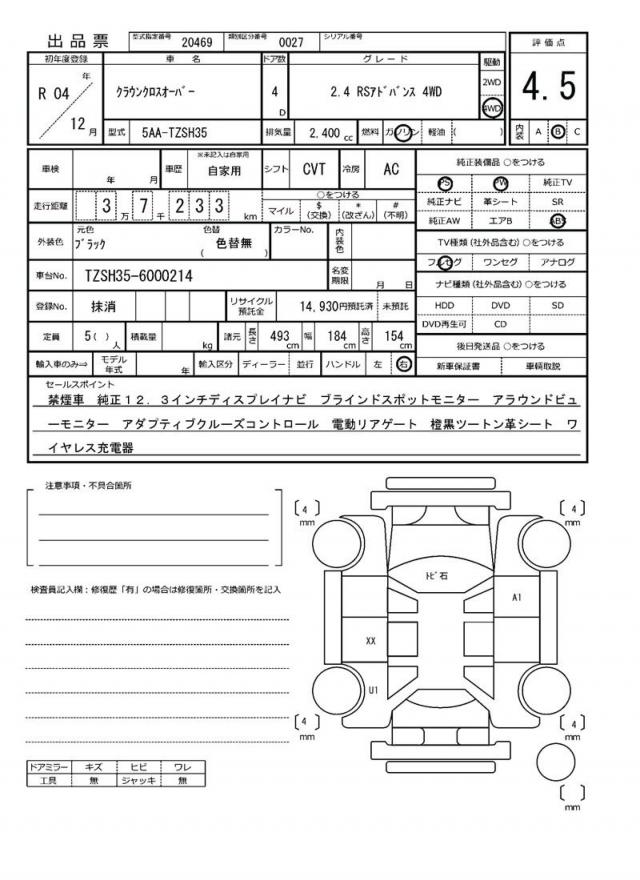 出品票 型式指定番号 20469 類別区分番号 0027 シリアル番号
初年度登録 車 名 ドア数 グレード 駆動 評価点
R 04 年 12 月 クラウンクロスオーバー 4 D 2.4 RSアドバンス 4WD 2WD 4WD 4.5
型式 5AA-TZSH35 排気量 2,400 cc 燃料 ガソリン 軽油 ( ) 内装 A B C
車検 年 月 車歴 ※未記入は自家用 自家用 シフト CVT 冷房 AC
純正装備品 ○をつける
PS PW 純正TV
純正ナビ 革シート SR
純正AW エアB ABS
走行距離 3 万 7 千 2 3 3 km
○をつける
マイル $ (交換) * (改ざん) # (不明)
外装色 元色 ブラック 色替 ( 色替無 ) カラーNo. 内装色
TV種類 (社外品含む) ○をつける
フルセグ ワンセグ アナログ
車台No. TZSH35-6000214 名変期限 月 日
ナビ種類 (社外品含む) ○をつける
HDD DVD SD
DVD再生可 CD
登録No. 抹消 リサイクル預託金 14,930円預託済 未預託
定員 5( ) 人 積載量 kg 諸元 長さ 493 cm 幅 184 cm 高さ 154 cm
後日発送品 ○をつける
新車保証書 車輌取説
輸入車のみ⇒ モデル年式 年 輸入区分 ディーラー 並行 ハンドル 左 右
セールスポイント
禁煙車 純正12.3インチディスプレイナビ ブラインドスポットモニター アラウンドビュ
ーモニター アダプティブクルーズコントロール 電動リアゲート 橙黒ツートン革シート ワ
イヤレス充電器
注意事項・不具合箇所
検査員記入欄：修復歴「有」の場合は修復箇所・交換箇所を記入
[ 4 ] mm
[ 4 ] mm
トビ石
A1
XX
U1
[ 4 ] mm
[ 4 ] mm
[ ] mm
ドアミラー キズ ヒビ ワレ
工具 無 ジャッキ 無